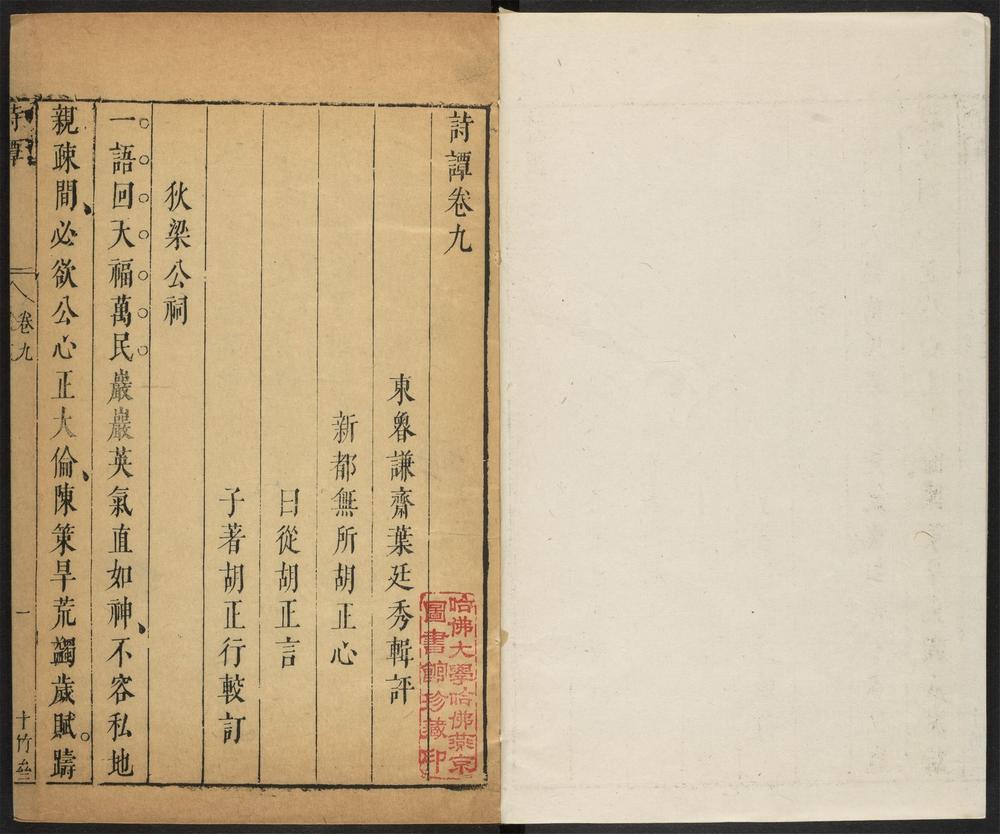 詩譚卷九
東魯謙齋葉廷秀輯評
新都無所胡正心
曰從胡正言
子著胡正行較訂
狄梁公祠
一語回天福萬民巖巖英氣直如神不容私地
親疎間必欲公心正大倫陳策旱荒蠲歲賦躊
詩譚
卷九
一
十竹
哈佛大學哈佛燕京
圖書館珍藏印